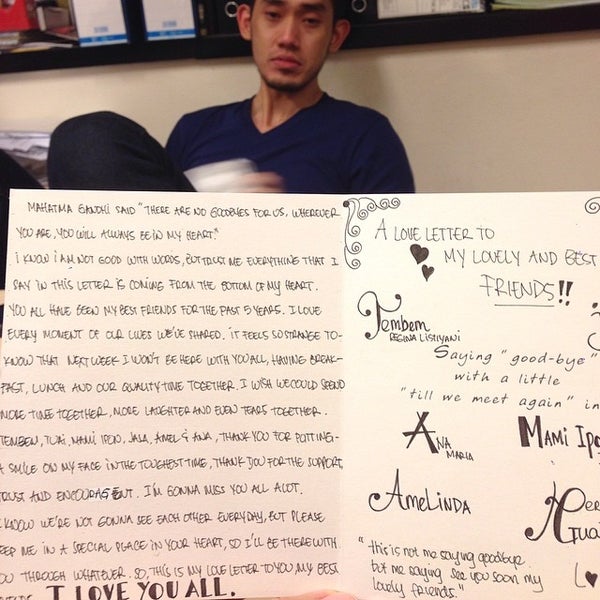 MAHATMA GANDHI SAID "THERE ARE NO GOODBYES FOR US, WHEREVER
YOU ARE, YOU WILL ALWAYS BE IN MY HEART."
I KNOW I AM NOT GOOD WITH WORDS, BUT TRUST ME EVERYTHING THAT I
SAY IN THIS LETTER IS COMING FROM THE BOTTOM OF MY HEART.
YOU ALL HAVE BEEN MY BEST FRIENDS FOR THE PAST 5 YEARS. I LOVE
EVERY MOMENT OF OUR LIVES WE'VE SHARED. IT FEELS SO STRANGE TO-
KNOW THAT NEXT WEEK I WON'T BE HERE WITH YOU ALL, HAVING BREAK-
FAST, LUNCH AND OUR QUALITY TIME TOGETHER. I WISH WE COULD SPEND
MORE TIME TOGETHER, MORE LAUGHTER AND EVEN TEARS TOGETHER.
TEMBEM, TUAI, MAMI IPON, JASA, AMEL & ANA, THANK YOU FOR PUTTING-
A SMILE ON MY FACE IN THE TOUGHEST TIME, THANK YOU FOR THE SUPPORT,
TRUST AND ENCOURAGENT. I'M GONNA MISS YOU ALL ALOT.
I KNOW WE'RE NOT GONNA SEE EACH OTHER EVERYDAY, BUT PLEASE
KEEP ME IN A SPECIAL PLACE IN YOUR HEART, SO I'LL BE THERE WITH
YOU THROUGH WHATEVER. SO, THIS IS MY LOVE LETTER TO YOU, MY BEST
I LOVE YOU ALL.
A LOVE LETTER TO
MY LOVELY AND BEST
FRIENDS!!
Tembem
REGINA LISTIYANI
Saying "good-bye"
with a little
"till we meet again" in
ANA
MARIA
MAMI IPO
AMELINDA
"this is not me saying goodbye.
but me saying see you soon my
lovely friends."